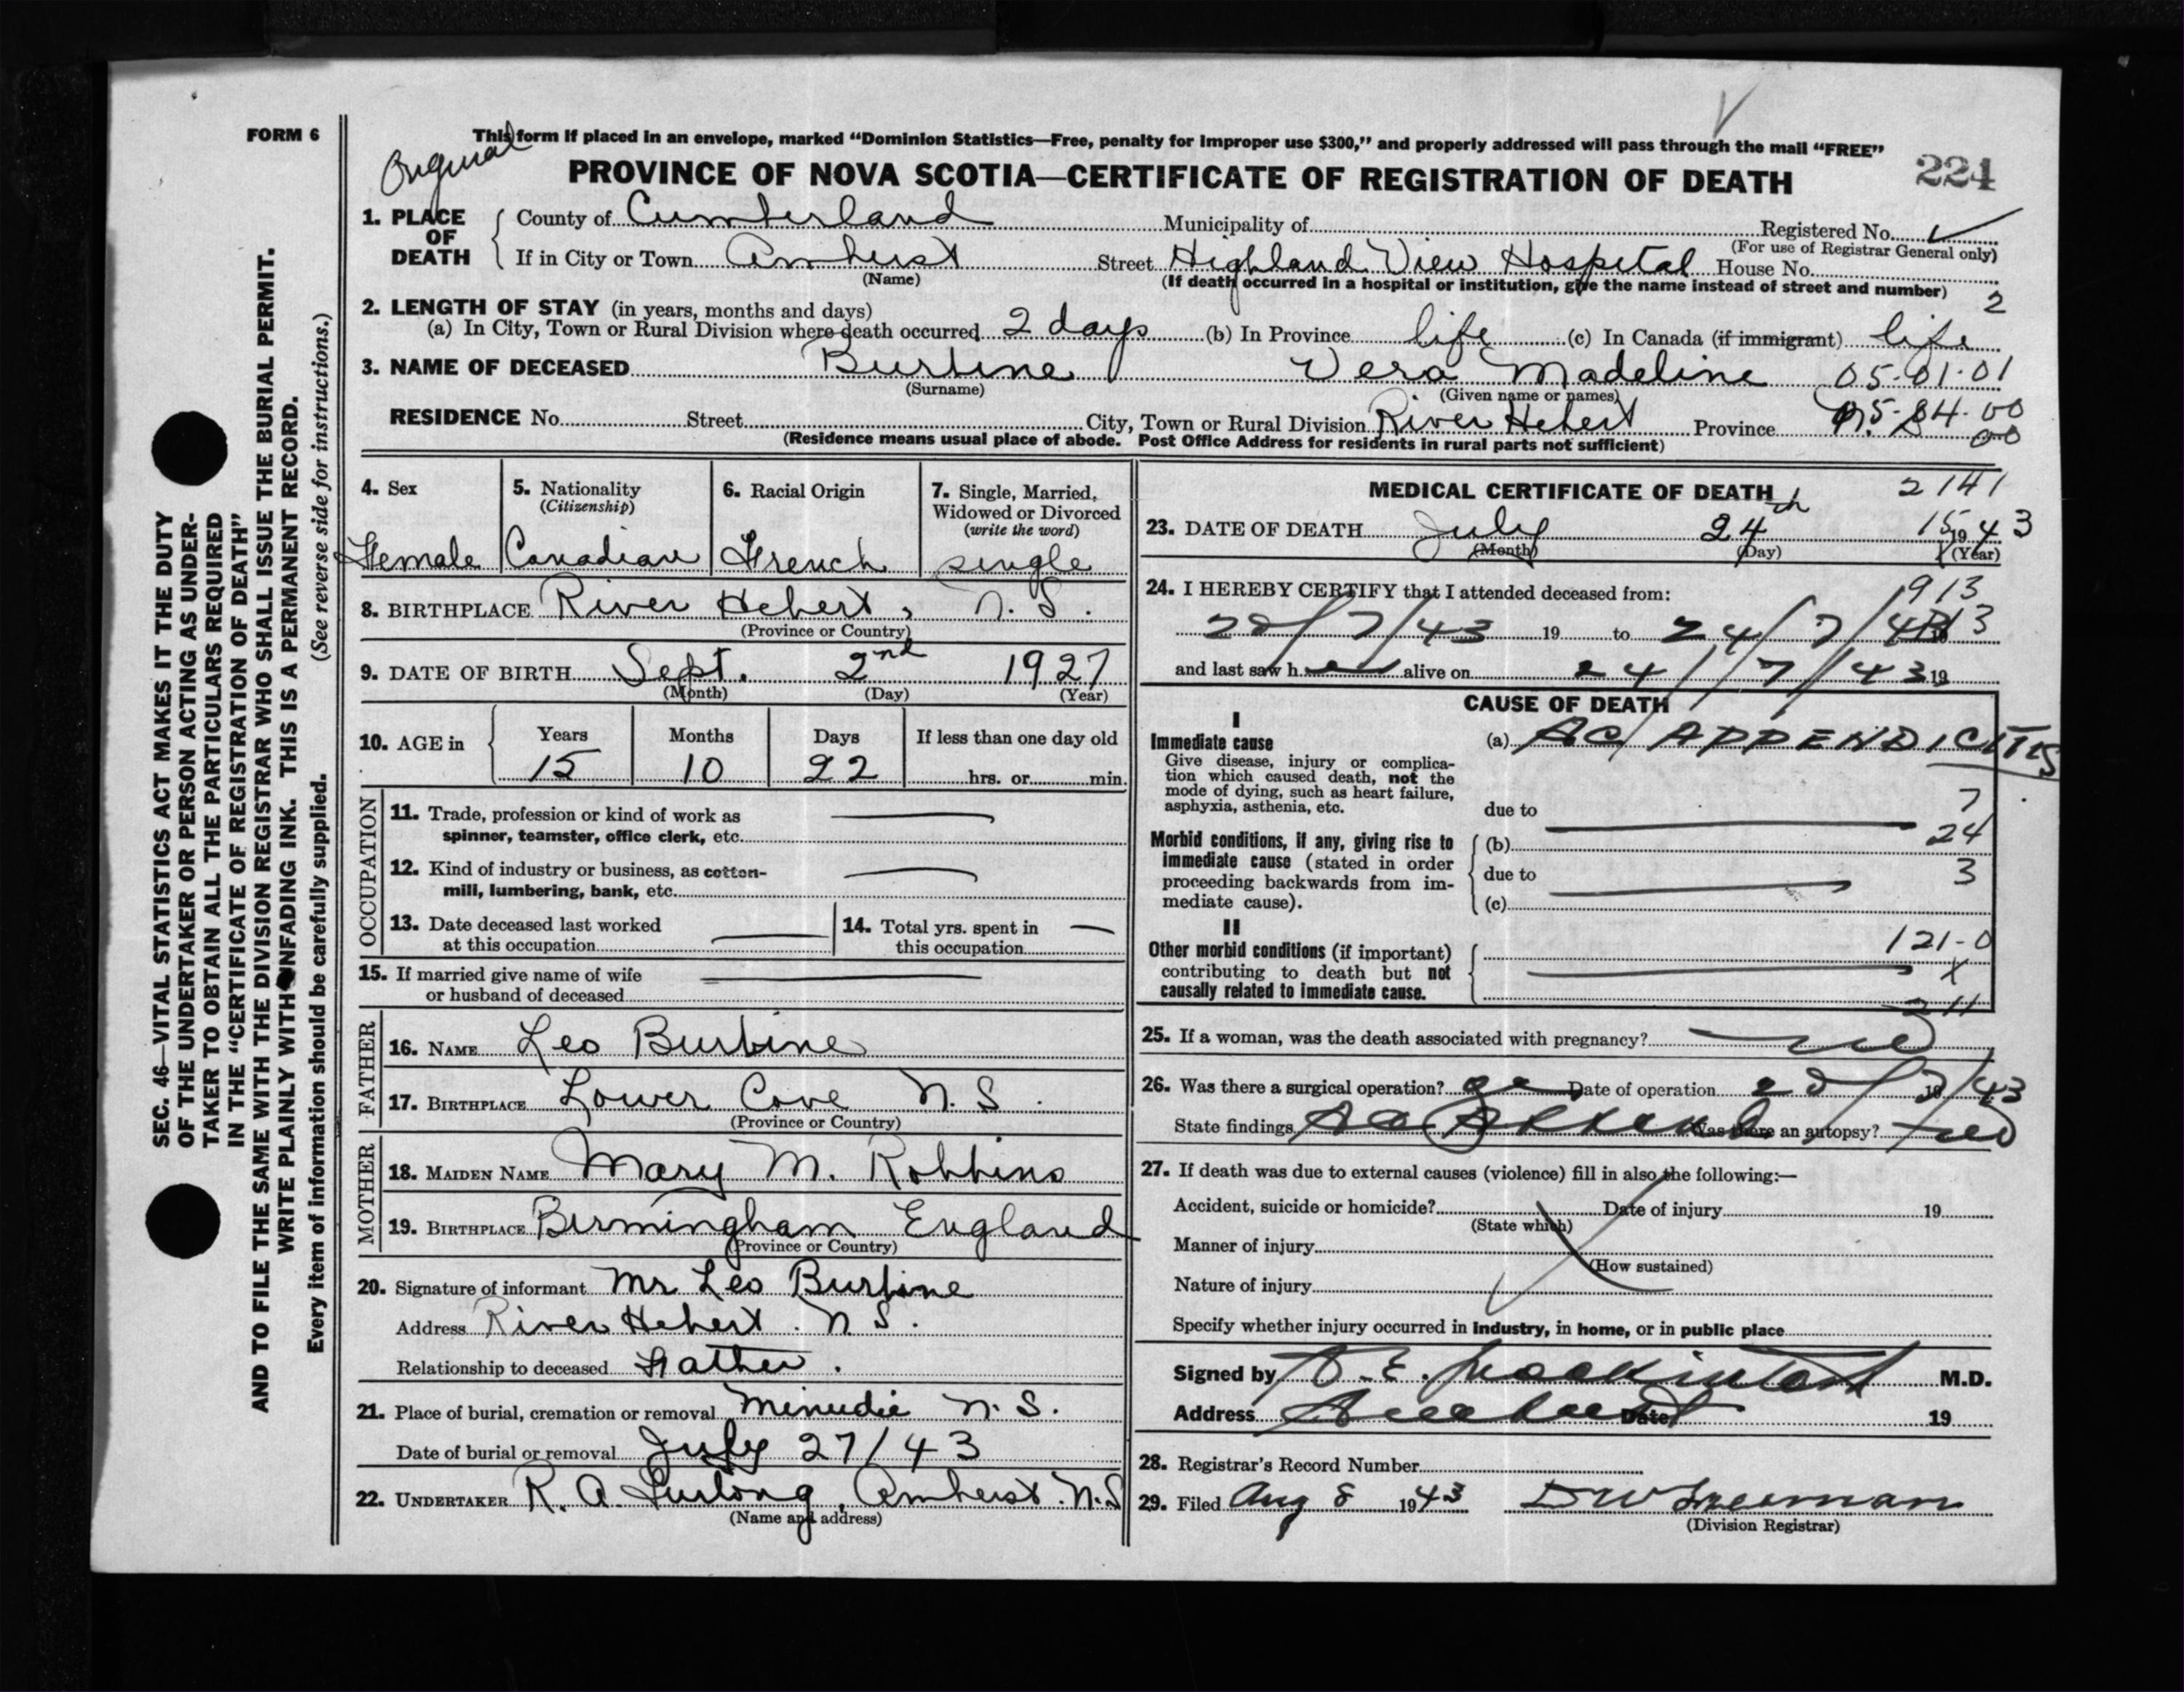 FORM 6
This form if placed in an envelope, marked "Dominion Statistics—Free, penalty for improper use $300," and properly addressed will pass through the mail "FREE"
Original
PROVINCE OF NOVA SCOTIA—CERTIFICATE OF REGISTRATION OF DEATH 224
1. PLACE OF DEATH County of Cumberland Municipality of Registered No.
(For use of Registrar General only)
If in City or Town Amherst Street Highland View Hospital House No.
(Name) (If death occurred in a hospital or institution, give the name instead of street and number)
2
2. LENGTH OF STAY (in years, months and days)
(a) In City, Town or Rural Division where death occurred 2 days (b) In Province life (c) In Canada (if immigrant) life
3. NAME OF DECEASED Burbine Vera Madeline 05-01-01
(Surname) (Given name or names)
RESIDENCE No. Street City, Town or Rural Division River Hebert Province N.S. 05-84-00
00
(Residence means usual place of abode. Post Office Address for residents in rural parts not sufficient)
4. Sex 5. Nationality (Citizenship) 6. Racial Origin 7. Single, Married, Widowed or Divorced (write the word)
Female Canadian French single
8. BIRTHPLACE River Hebert, N.S.
(Province or Country)
9. DATE OF BIRTH Sept. 2nd 1927
(Month) (Day) (Year)
10. AGE in Years Months Days If less than one day old
15 10 22 hrs. or min.
OCCUPATION
11. Trade, profession or kind of work as
spinner, teamster, office clerk, etc.
12. Kind of industry or business, as cotton-
mill, lumbering, bank, etc.
13. Date deceased last worked 14. Total yrs. spent in
at this occupation this occupation
15. If married give name of wife
or husband of deceased
FATHER
16. NAME Leo Burbine
17. BIRTHPLACE Lower Cove N.S.
(Province or Country)
MOTHER
18. MAIDEN NAME Mary M. Robbins
19. BIRTHPLACE Birmingham England
(Province or Country)
20. Signature of informant Mr Leo Burbine
Address River Hebert. N.S.
Relationship to deceased Father.
21. Place of burial, cremation or removal Minudie N.S.
Date of burial or removal July 27/43
22. UNDERTAKER R. A. Furlong, Amherst. N.S
(Name and address)
MEDICAL CERTIFICATE OF DEATH 2141
23. DATE OF DEATH July 24th 15 1943
(Month) (Day) (Year)
24. I HEREBY CERTIFY that I attended deceased from: 913
/7/43 19 to 24/7/43
and last saw h er alive on 24/7/43 19
CAUSE OF DEATH
I
Immediate cause (a) AC APPENDICITIS
Give disease, injury or complica-
tion which caused death, not the
mode of dying, such as heart failure,
asphyxia, asthenia, etc. due to 7
Morbid conditions, if any, giving rise to (b) 24
immediate cause (stated in order
proceeding backwards from im- due to 3
mediate cause). (c)
II 121-0
Other morbid conditions (if important) X
contributing to death but not
causally related to immediate cause. 211
25. If a woman, was the death associated with pregnancy? no
26. Was there a surgical operation? Date of operation /7/43
State findings Was there an autopsy? no
27. If death was due to external causes (violence) fill in also the following:—
Accident, suicide or homicide? Date of injury 19
(State which)
Manner of injury
(How sustained)
Nature of injury
Specify whether injury occurred in industry, in home, or in public place
Signed by Mackintosh M.D.
Address Amherst Date 19
28. Registrar's Record Number
29. Filed Aug 8 1943
(Division Registrar)
SEC. 46—VITAL STATISTICS ACT MAKES IT THE DUTY
OF THE UNDERTAKER OR PERSON ACTING AS UNDER-
TAKER TO OBTAIN ALL THE PARTICULARS REQUIRED
IN THE "CERTIFICATE OF REGISTRATION OF DEATH"
AND TO FILE THE SAME WITH THE DIVISION REGISTRAR WHO SHALL ISSUE THE BURIAL PERMIT.
WRITE PLAINLY WITH UNFADING INK. THIS IS A PERMANENT RECORD.
Every item of information should be carefully supplied. (See reverse side for instructions.)